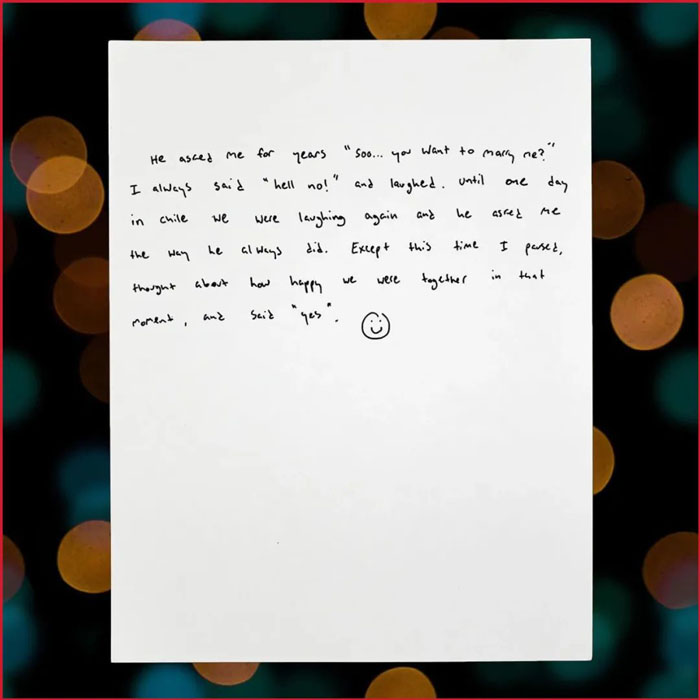 He asked me for years "Soo... you want to marry me?"
I always said "hell no!" and laughed. Until one day
in chile we were laughing again and he asked me
the way he always did. Except this time I paused,
thought about how happy we were together in that
moment, and said "yes".